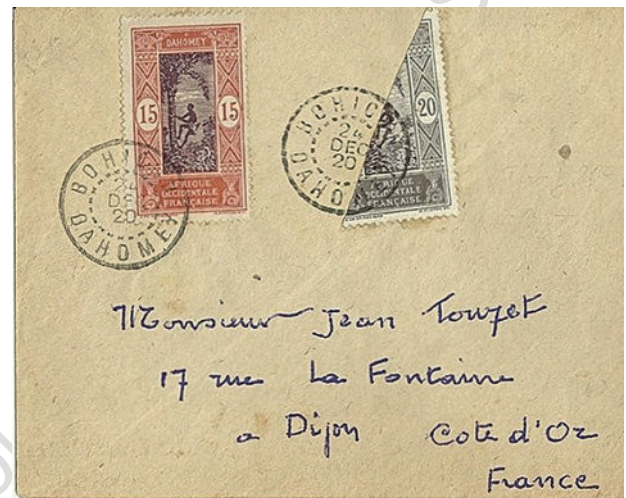 DAHOMEY
15 15
AFRIQUE
OCCIDENTALE
FRANÇAISE
BOHICO
24
DEC
20
DAHOMEY
20
AFRIQUE
OCCIDENTALE
FRANÇAISE
BOHIC
24
DEC
20
DAHO
Monsieur Jean Touzet
17 rue La Fontaine
a Dijon Cote d'Or
France